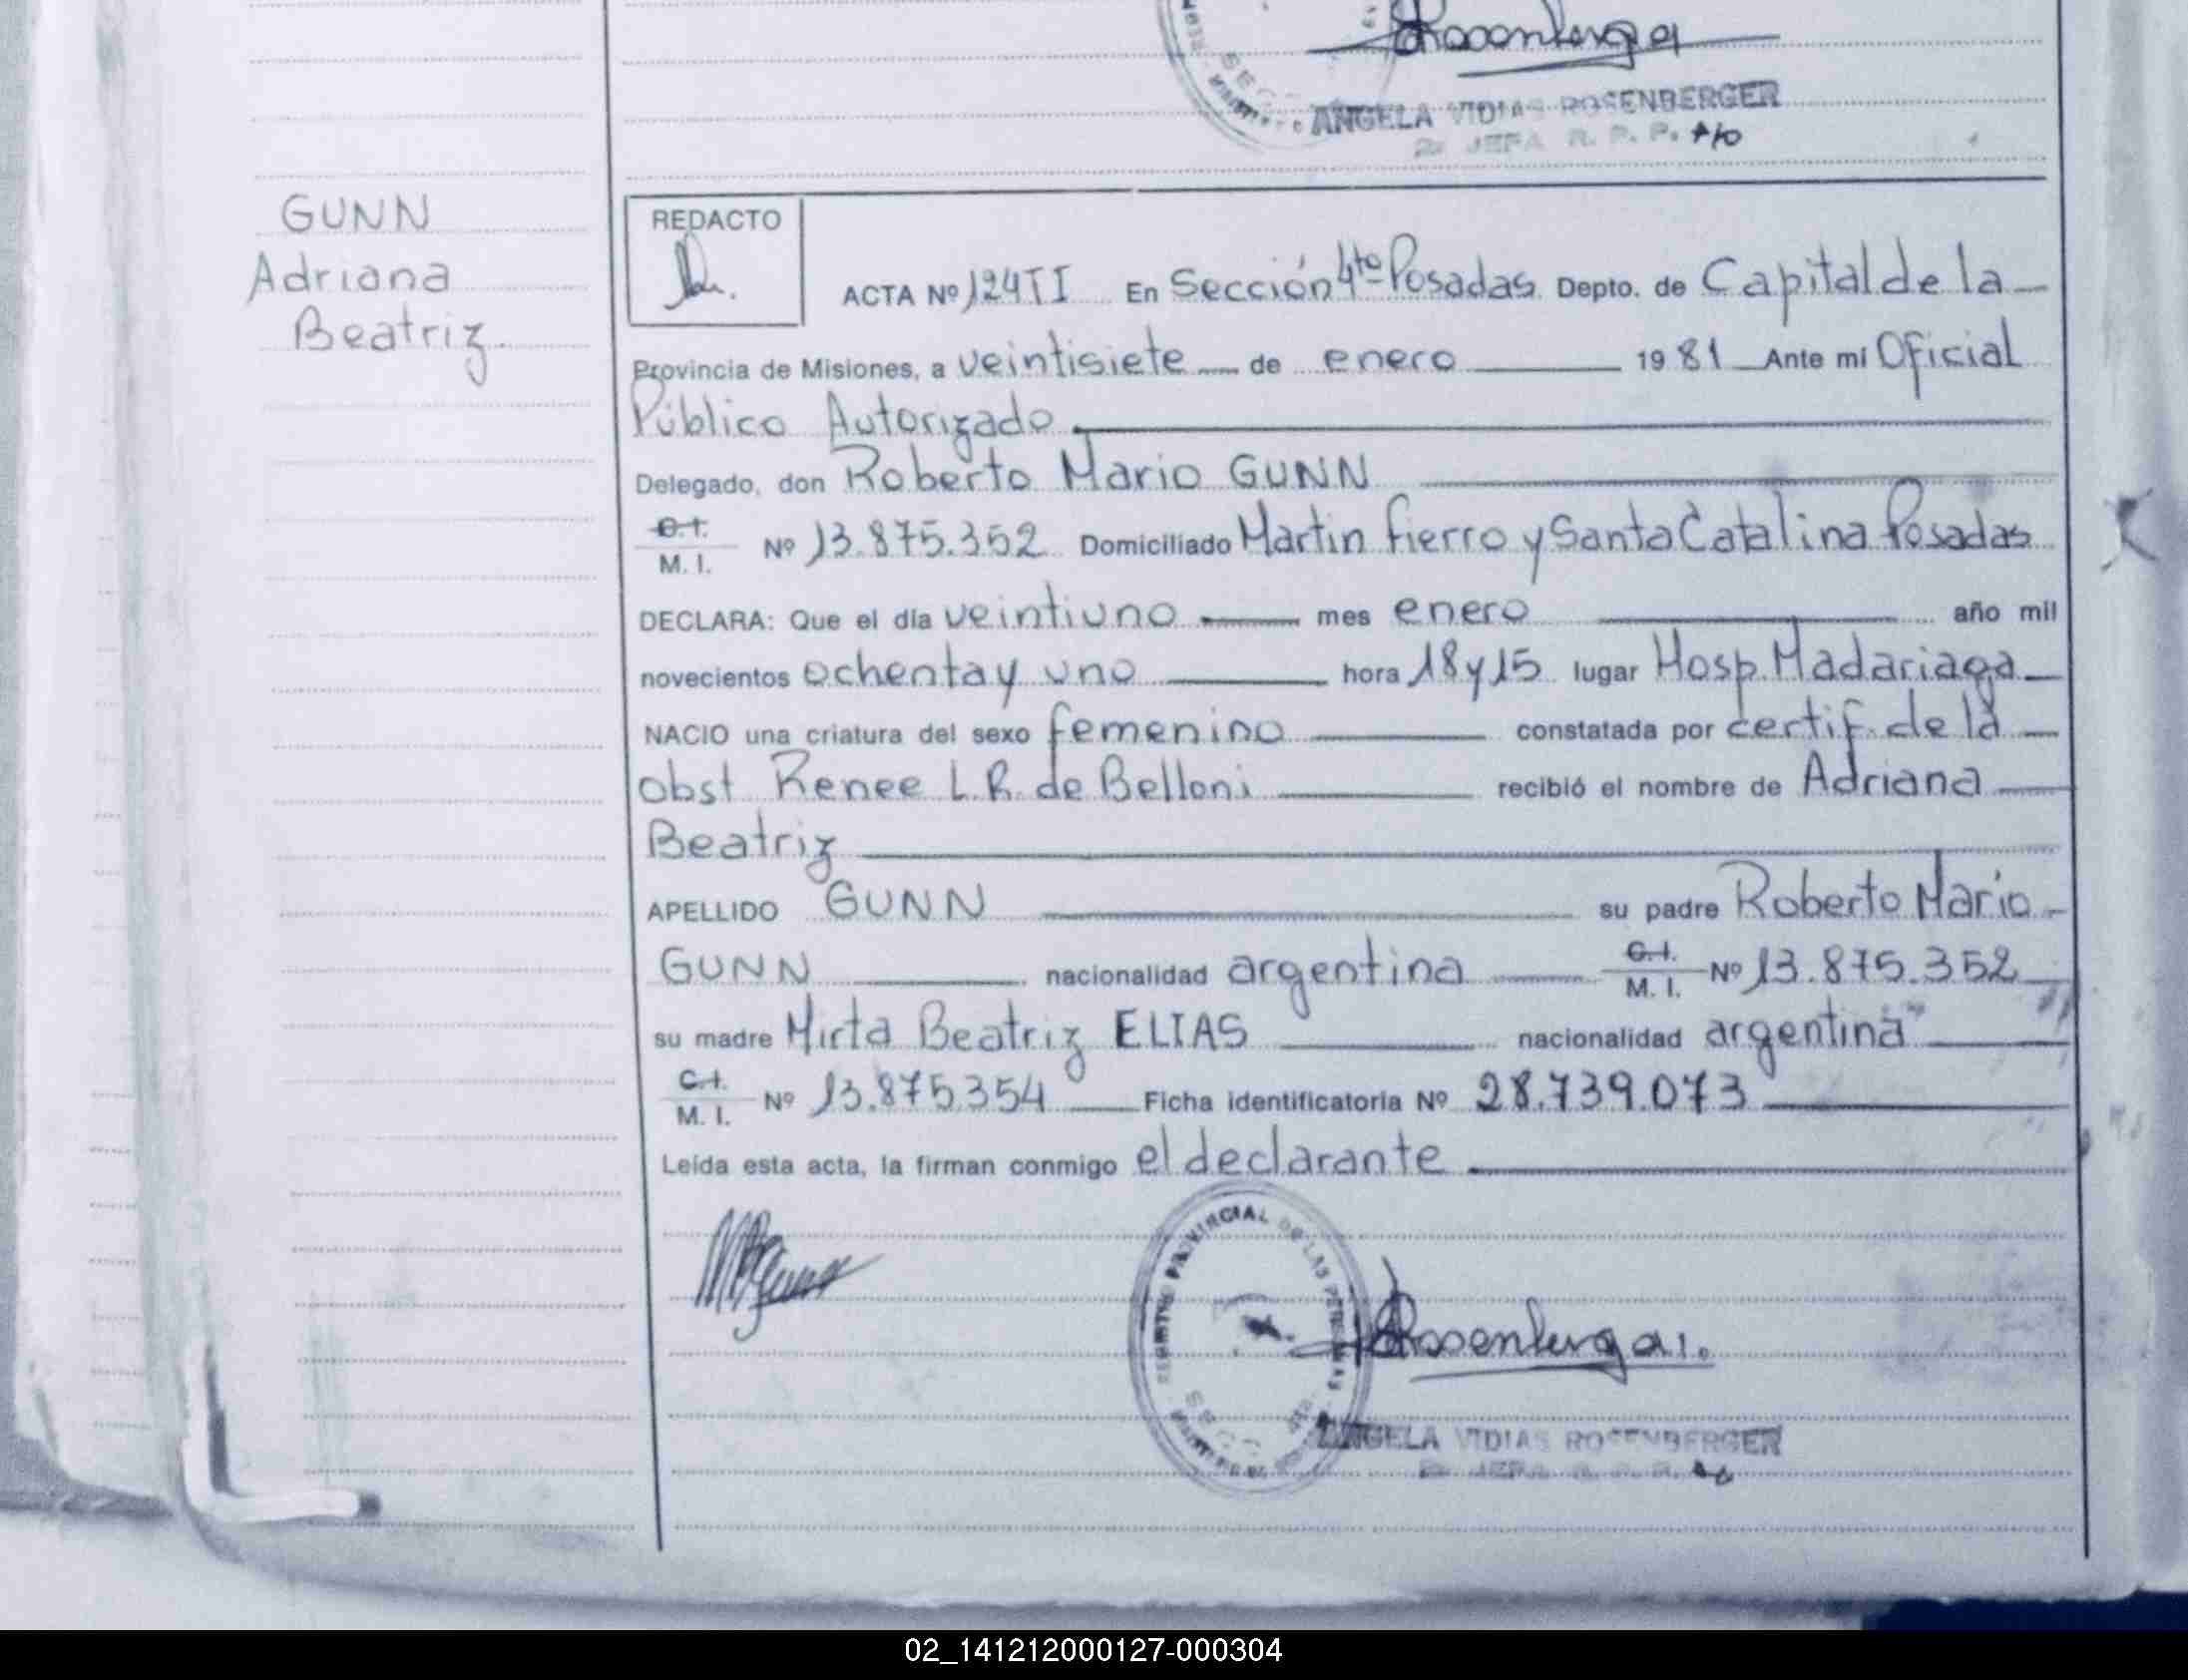 Rosenberger
ANGELA VIDIAS ROSENBERGER
JEFA R. P. P. A/C
GUNN
Adriana
Beatriz.
REDACTO
ACTA Nº 124 TI En Sección 4ta Posadas Depto. de Capital de la
Provincia de Misiones, a veintisiete de enero 1981 Ante mí Oficial
Público Autorizado
Delegado, don Roberto Mario GUNN
C.I.
M. I. Nº 13.875.352 Domiciliado Martin Fierro y Santa Catalina Posadas
DECLARA: Que el día veintiuno mes enero año mil
novecientos ochenta y uno hora 18 y 15 lugar Hosp. Madariaga
NACIO una criatura del sexo femenino constatada por certif. de la
obst Renee L.R. de Belloni recibió el nombre de Adriana
Beatriz
APELLIDO GUNN su padre Roberto Mario
GUNN nacionalidad argentina C.I. M. I. Nº 13.875.352
su madre Mirta Beatriz ELIAS nacionalidad argentina
C.I.
M. I. Nº 13.875354 Ficha identificatoria Nº 28.739.073
Leída esta acta, la firman conmigo el declarante
REGISTRO PROVINCIAL DE LAS PERSONAS
Rosenberger
ANGELA VIDIAS ROSENBERGER
JEFA R. P. P.
02_141212000127-000304